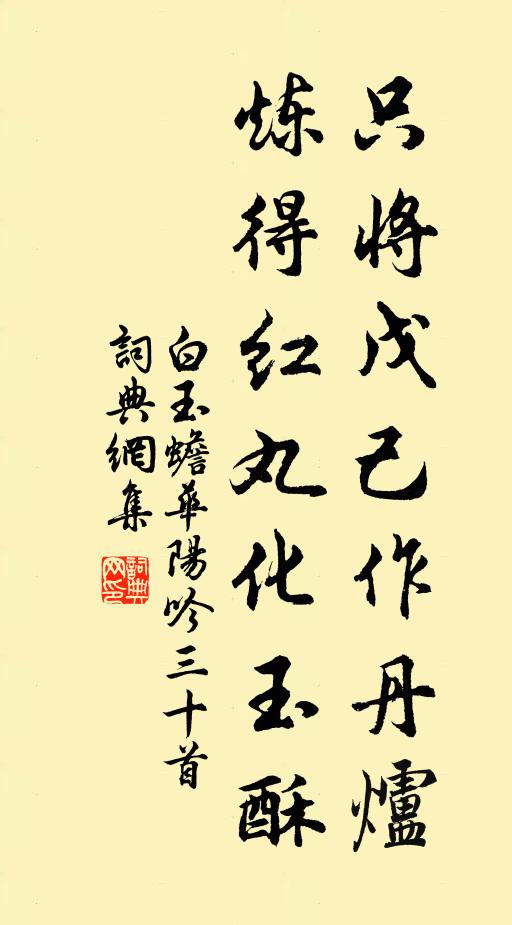 只將戊己作丹爐
炼得红丸化玉酥
白玉蟾華陽吟三十首
詞典網集
詞典网印